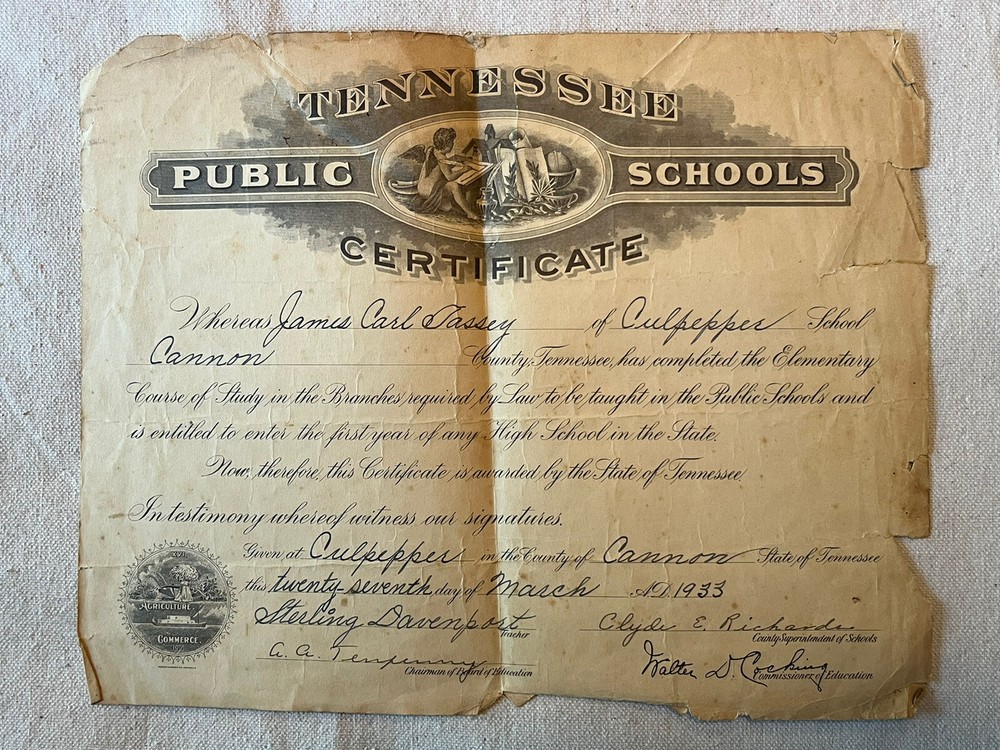 TENNESSEE
PUBLIC SCHOOLS
CERTIFICATE
Whereas James Carl Tassey of Culpepper School
Cannon County, Tennessee, has completed the Elementary
Course of Study in the Branches required by Law to be taught in the Public Schools and
is entitled to enter the first year of any High School in the State.
Now, therefore, this Certificate is awarded by the State of Tennessee.
In testimony whereof witness our signatures.
Given at Culpepper in the County of Cannon State of Tennessee
this twenty-seventh day of March A.D. 1933
AGRICULTURE
COMMERCE
Sterling Davenport
Teacher
Clyde E. Richards
County Superintendent of Schools
A. A.
Chairman of Board of Education
Walter D. Cocking
Commissioner of Education